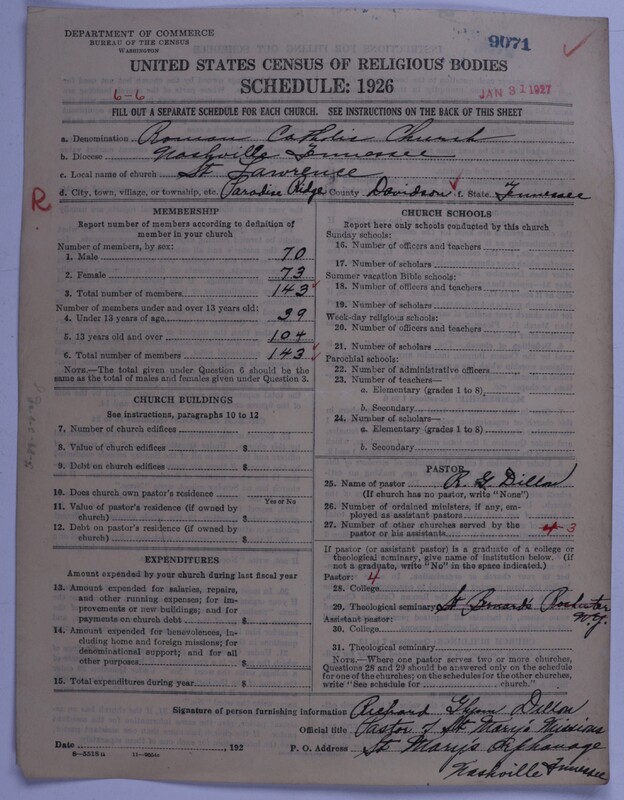 DEPARTMENT OF COMMERCE
BUREAU OF THE CENSUS
WASHINGTON
9071
UNITED STATES CENSUS OF RELIGIOUS BODIES
SCHEDULE: 1926
6-6
JAN 31 1927
FILL OUT A SEPARATE SCHEDULE FOR EACH CHURCH. SEE INSTRUCTIONS ON THE BACK OF THIS SHEET
a. Denomination Roman Catholic Church
b. Diocese Nashville Tennessee
c. Local name of church St Lawrence
d. City, town, village, or township, etc. Paradise Ridge County Davidson f. State Tennessee
R
MEMBERSHIP
Report number of members according to definition of member in your church
Number of members, by sex:
1. Male 70
2. Female 73
3. Total number of members 143
Number of members under and over 13 years old:
4. Under 13 years of age 39
5. 13 years old and over 104
6. Total number of members 143
NOTE.—The total given under Question 6 should be
the same as the total of males and females given under Question 3.
CHURCH BUILDINGS
See instructions, paragraphs 10 to 12
7. Number of church edifices
8. Value of church edifices $
9. Debt on church edifices $
10. Does church own pastor's residence
Yes or No
11. Value of pastor's residence (if owned by
church) $
12. Debt on pastor's residence (if owned by
church) $
EXPENDITURES
Amount expended by your church during last fiscal year
13. Amount expended for salaries, repairs,
and other running expenses; for im-
provements or new buildings; and for
payments on church debt $
14. Amount expended for benevolences, in-
cluding home and foreign missions; for
denominational support; and for all
other purposes $
15. Total expenditures during year $
CHURCH SCHOOLS
Report here only schools conducted by this church
Sunday schools:
16. Number of officers and teachers
17. Number of scholars
Summer vacation Bible schools:
18. Number of officers and teachers
19. Number of scholars
Week-day religious schools:
20. Number of officers and teachers
21. Number of scholars
Parochial schools:
22. Number of administrative officers
23. Number of teachers—
a. Elementary (grades 1 to 8)
b. Secondary
24. Number of scholars—
a. Elementary (grades 1 to 8)
b. Secondary
PASTOR
25. Name of pastor R. G. Dillon
(If church has no pastor, write "None")
26. Number of ordained ministers, if any, em-
ployed as assistant pastors
27. Number of other churches served by the
pastor or his assistants 4 3
If pastor (or assistant pastor) is a graduate of a college or
theological seminary, give name of institution below. (If
not a graduate, write "No" in the space indicated.)
Pastor: 4
28. College
29. Theological seminary St Bernard's Rochester
N.Y.
Assistant pastor:
30. College
31. Theological seminary
NOTE.—Where one pastor serves two or more churches,
Questions 28 and 29 should be answered only on the schedule
for one of the churches; on the schedules for the other churches,
write "See schedule for church."
Signature of person furnishing information Richard Glynn Dillon
Official title Pastor of St Mary's Missions
Date , 192 P. O. Address St Mary's Orphanage
Nashville Tennessee